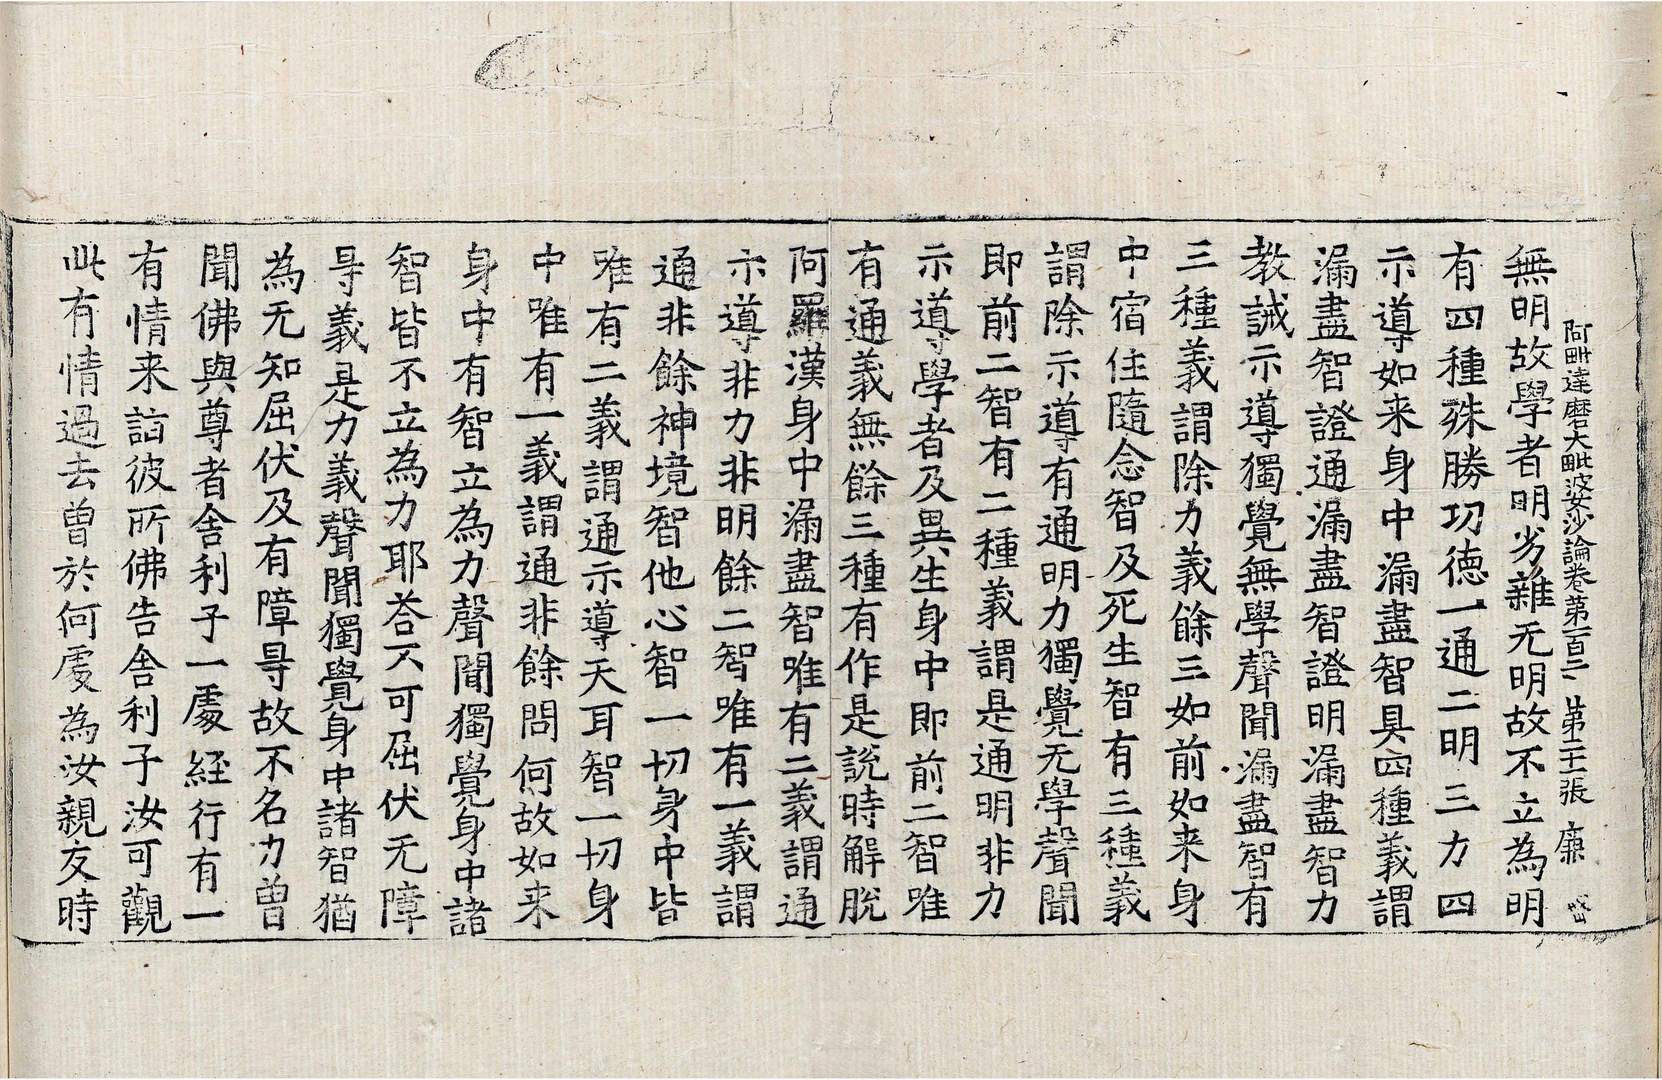 阿毗達磨大毗婆沙論卷第一百二　第二十張　廉
無明故學者明劣雜无明故不立為明
有四種殊勝功德一通二明三力四
示導如来身中漏盡智具四種義謂
漏盡智證通漏盡智證明漏盡智力
教誡示導獨覺無學聲聞漏盡智有
三種義謂除力義餘三如前如来身
中宿住隨念智及死生智有三種義
謂除示導有通明力獨覺无學聲聞
即前二智有二種義謂是通明非力
示導學者及異生身中即前二智唯
有通義無餘三種有作是說時解脫
阿羅漢身中漏盡智唯有二義謂通
示導非力非明餘二智唯有一義謂
通非餘神境智他心智一切身中皆
唯有二義謂通示導天耳智一切身
中唯有一義謂通非餘問何故如来
身中有智立為力聲聞獨覺身中諸
智皆不立為力耶荅不可屈伏无障
㝵義是力義聲聞獨覺身中諸智猶
為无知屈伏及有障㝵故不名力曾
聞佛與尊者舍利子一處經行有一
有情来詣彼所佛告舍利子汝可觀
此有情過去曾於何處為汝親友時